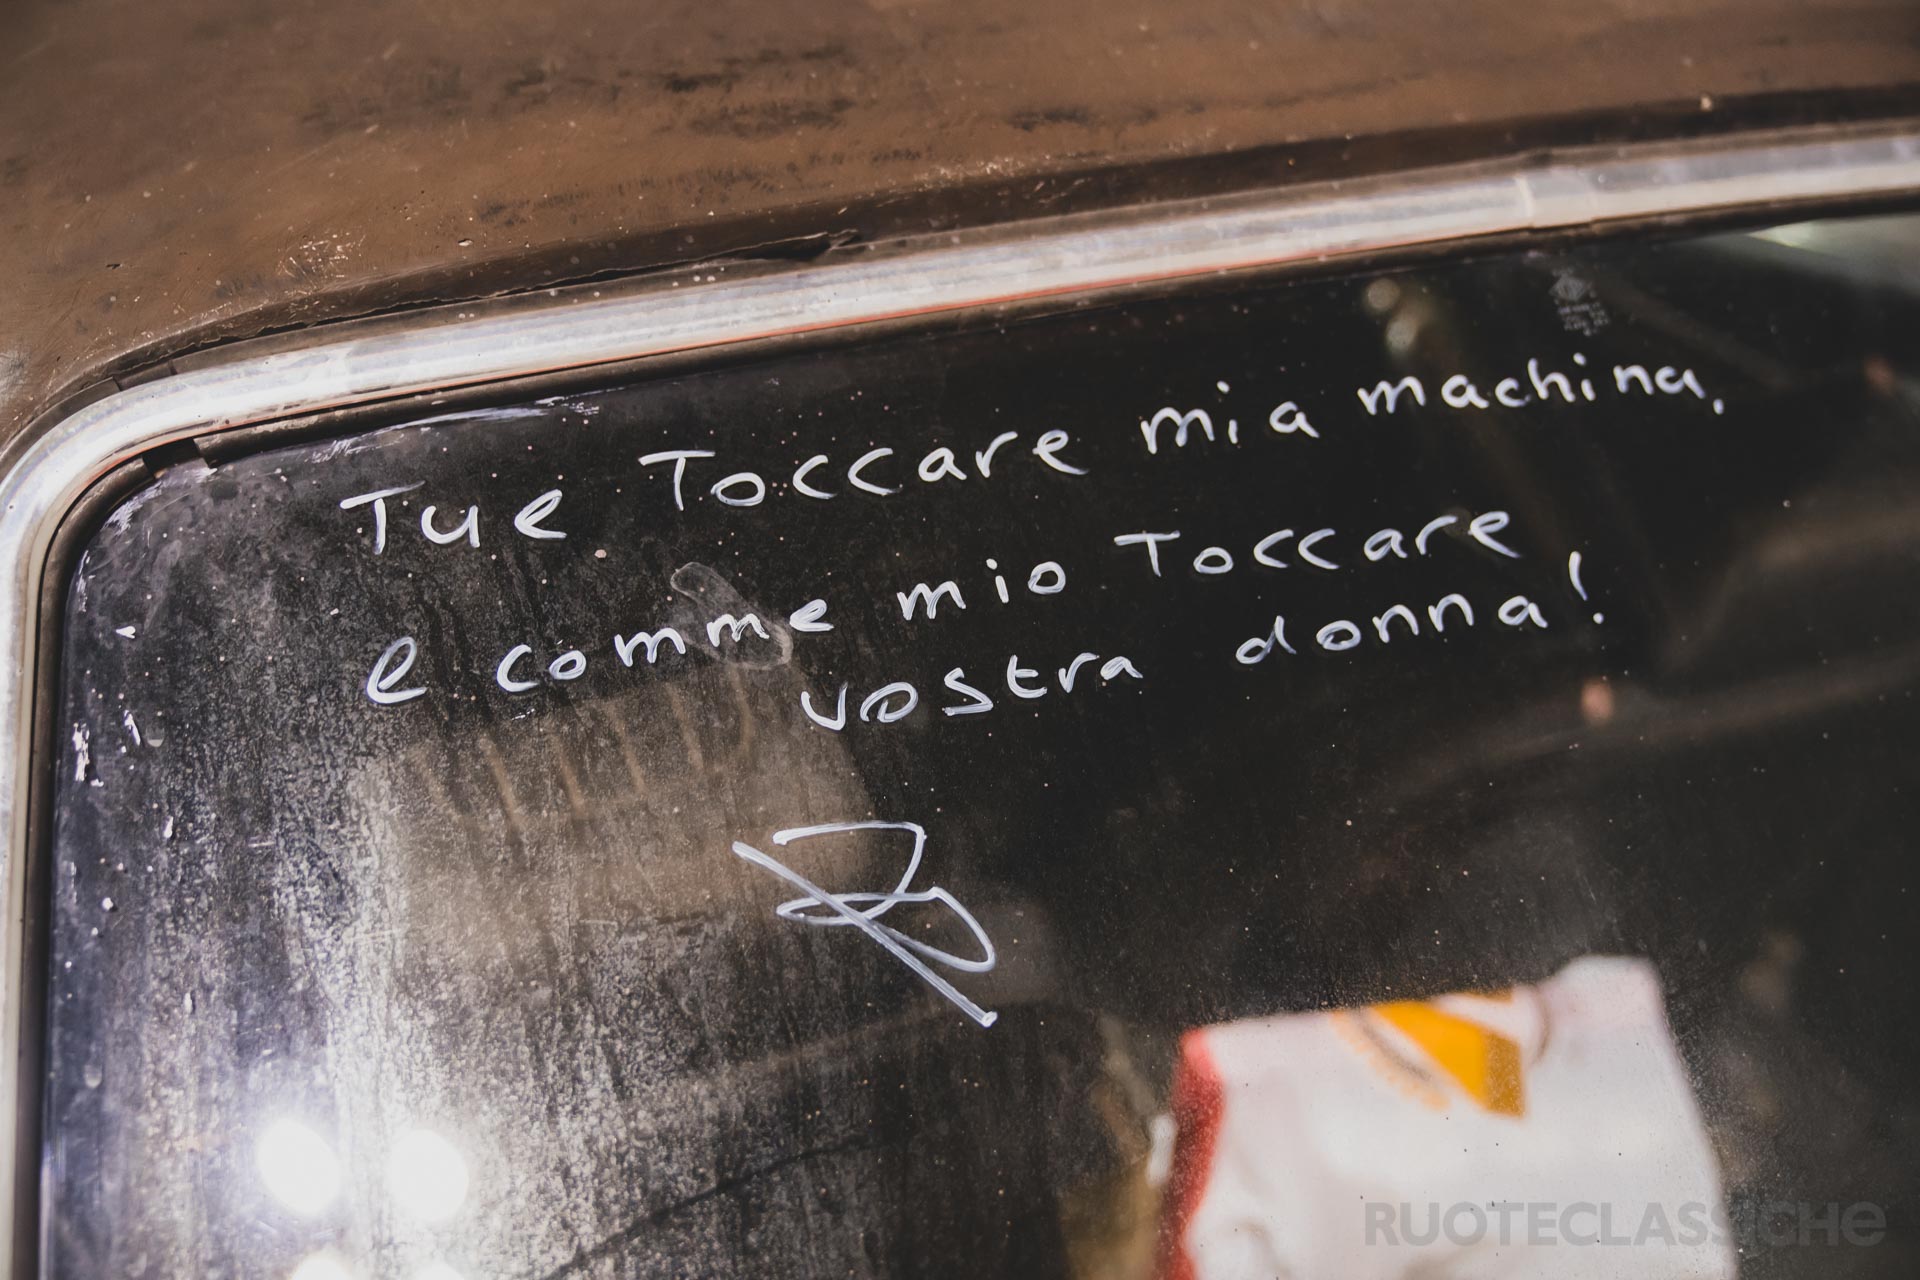 Tue Toccare mia machina,
e comme mio Toccare
vostra donna!
RUOTECLASSICHE